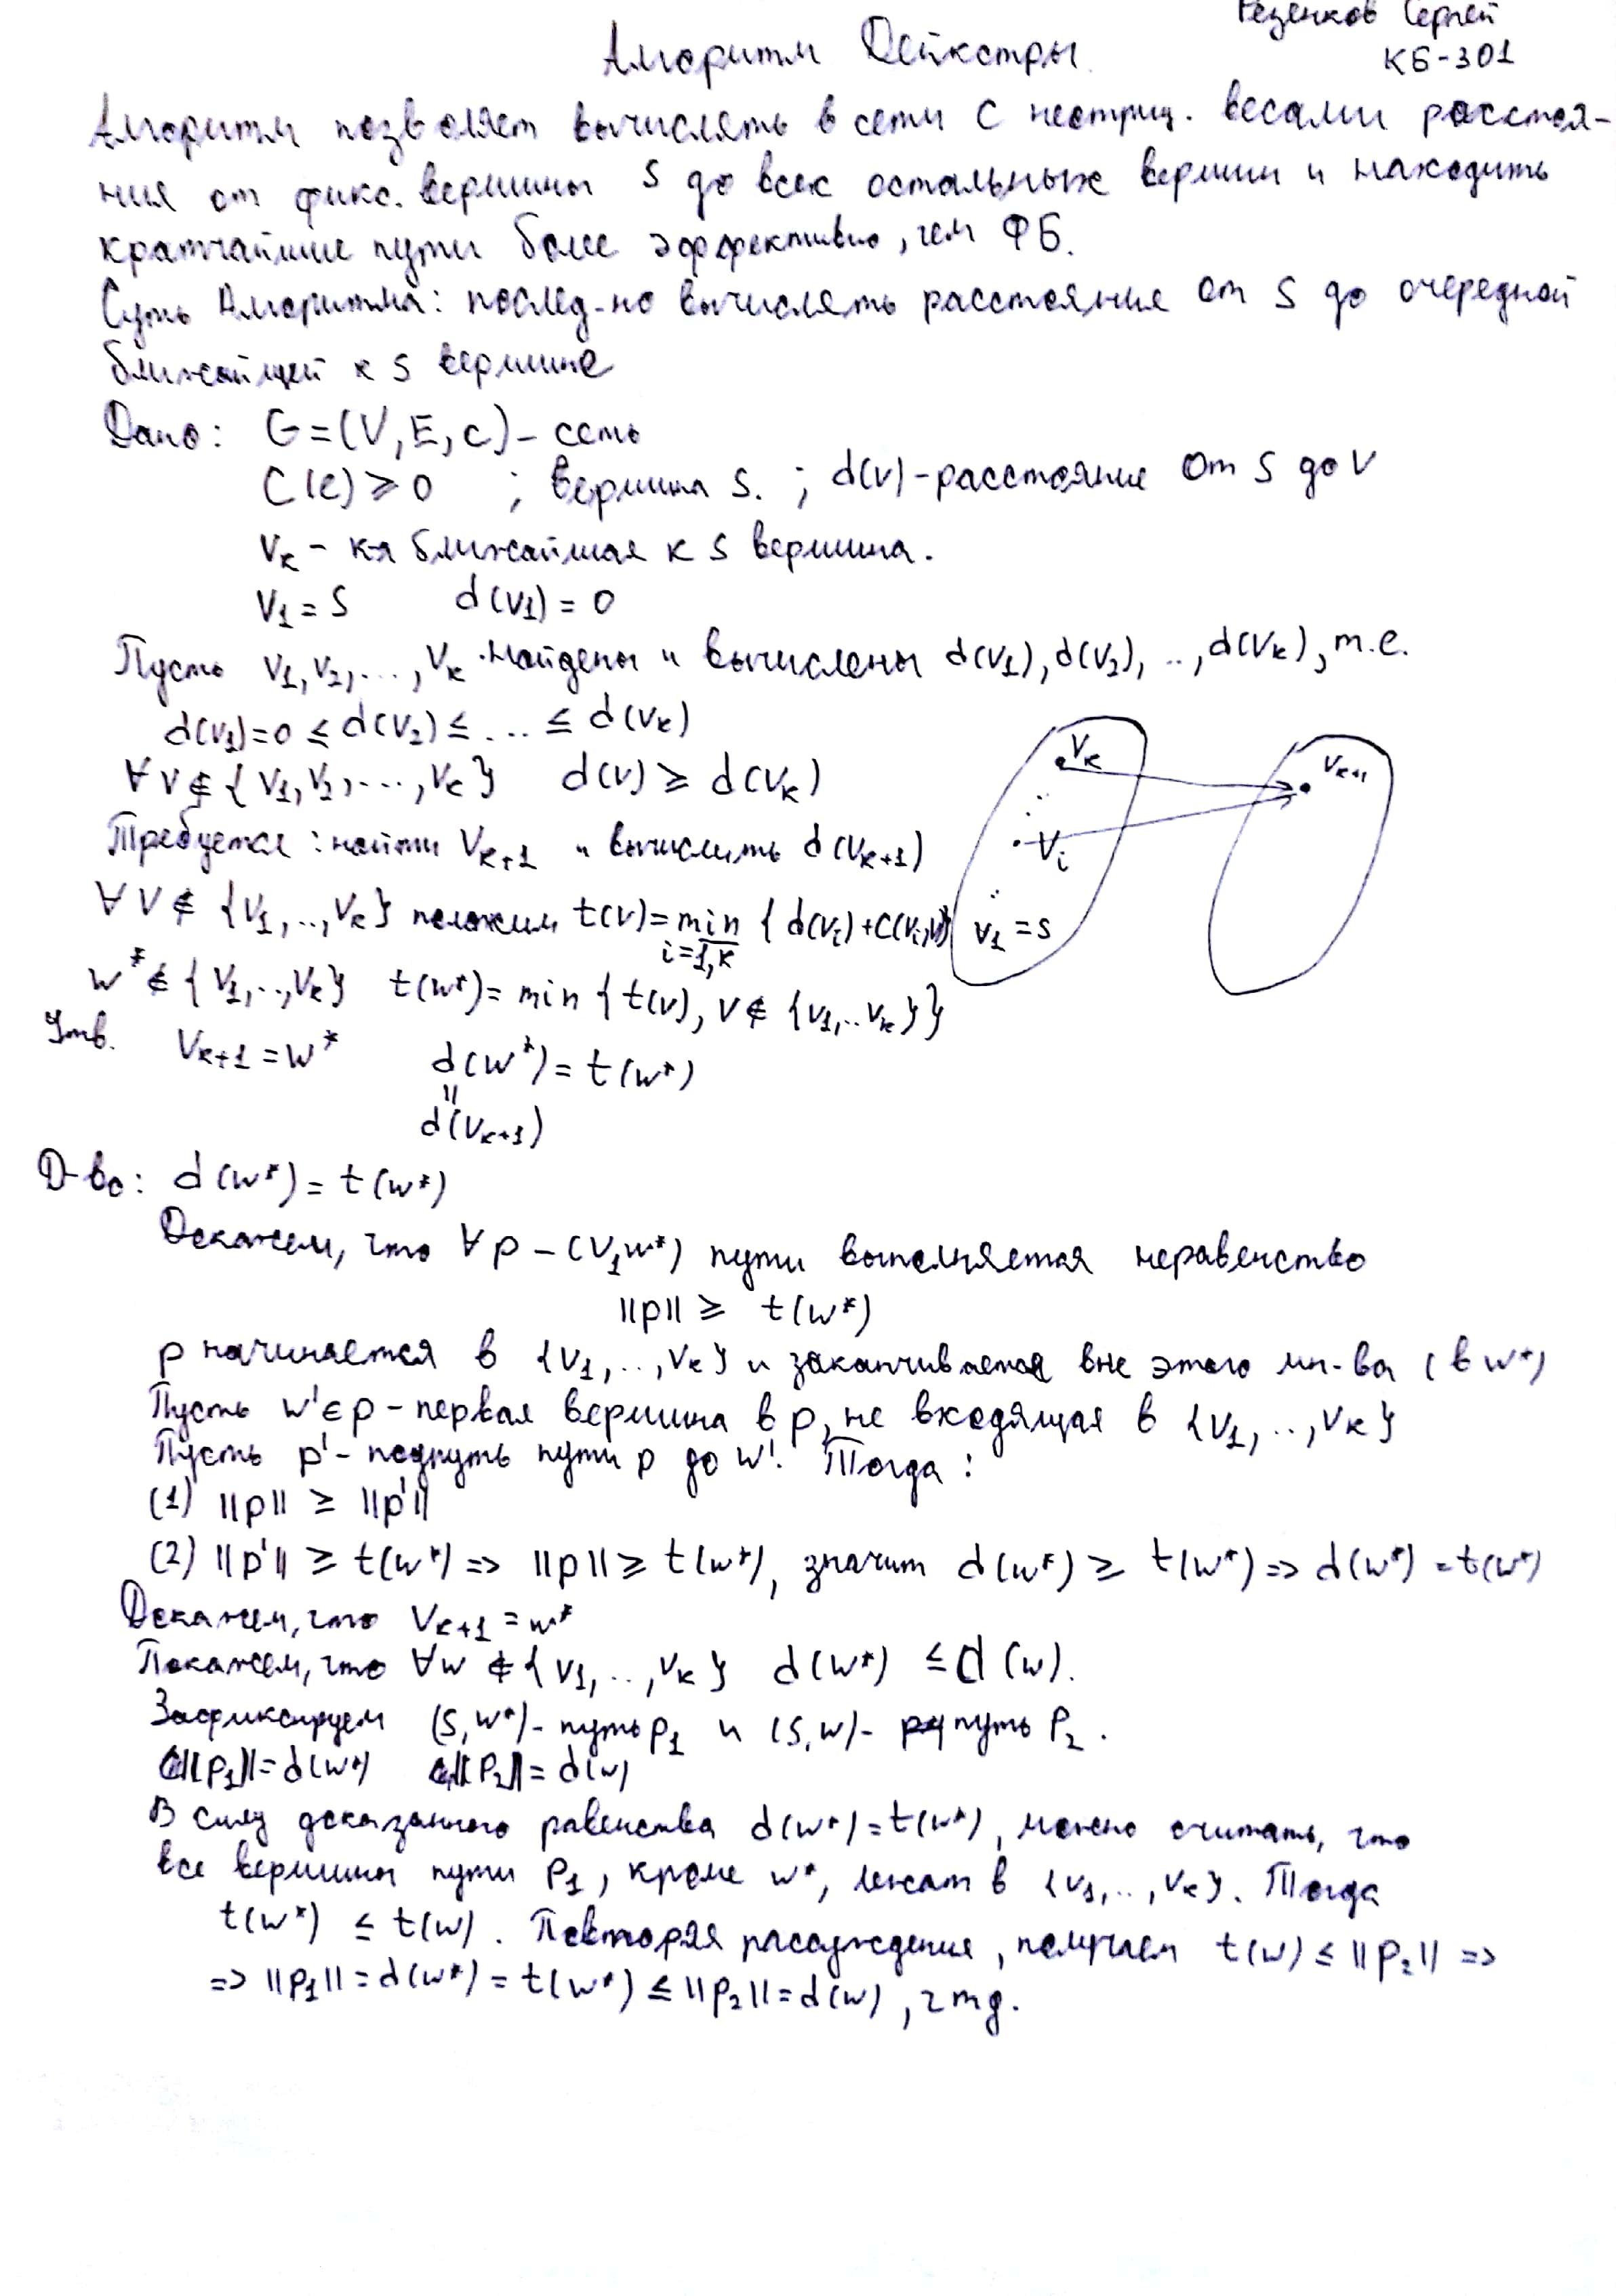 Резенков Сергей
КБ-301
Алгоритм Дейкстры
Алгоритм позволяет вычислять в сети с неотриц. весами расстоя-
ния от фикс. вершины S до всех остальных вершин и находить
кратчайшие пути более эффективно, чем ФБ.
Суть Алгоритма: послед-но вычислять расстояния от S до очередной
ближайшей к S вершине
Дано: G=(V,E,c) – сеть
C(e) ≥ 0 ; вершина S. ; d(v) - расстояние от S до V
Vₖ – к-я ближайшая к S вершина.
V₁ = S d(v₁) = 0
Пусть V₁, V₂, ..., Vₖ найдены и вычислены d(v₁), d(v₂), .., d(vₖ), т.е.
d(v₁)=0 ≤ d(v₂) ≤ ... ≤ d(vₖ)
∀ v ∉ {v₁, v₂, ..., vₖ} d(v) ≥ d(vₖ)
Требуется: найти Vₖ₊₁ и вычислить d(vₖ₊₁)
∀ v ∉ {v₁, .., vₖ} положим t(v) = min {d(vᵢ) + c(vᵢ,v)}
i=1,k
Vₖ
Vₖ₊₁
Vᵢ
V₁ = S
w* ∉ {v₁, .., vₖ} t(w*) = min {t(v), v ∉ {v₁, .. vₖ}}
Утв. Vₖ₊₁ = w* d(w*) = t(w*)
||
d(vₖ₊₁)
Д-во: d(w*) = t(w*)
Докажем, что ∀ p – (v₁w*) пути выполняется неравенство
||p|| ≥ t(w*)
p начинается в {v₁, .., vₖ} и заканчивается вне этого мн-ва (в w*)
Пусть w' ∈ p – первая вершина в p, не входящая в {v₁, .., vₖ}
Пусть p' – подпуть пути p до w'. Тогда:
(1) ||p|| ≥ ||p'||
(2) ||p'|| ≥ t(w*) => ||p|| ≥ t(w*), значит d(w*) ≥ t(w*) => d(w*) = t(w*)
Докажем, что Vₖ₊₁ = w*
Покажем, что ∀w ∉ {v₁, .., vₖ} d(w*) ≤ d(w).
Зафиксируем (S,w*) – путь p₁ и (S,w) – путь p₂.
||p₁|| = d(w*) ||p₂|| = d(w)
В силу доказанного равенства d(w*) = t(w*), можно считать, что
все вершины пути p₁, кроме w*, лежат в {v₁, .., vₖ}. Тогда
t(w*) ≤ t(w). Повторяя рассуждения, получаем t(w) ≤ ||p₂|| =>
=> ||p₁|| = d(w*) = t(w*) ≤ ||p₂|| = d(w), чтд.